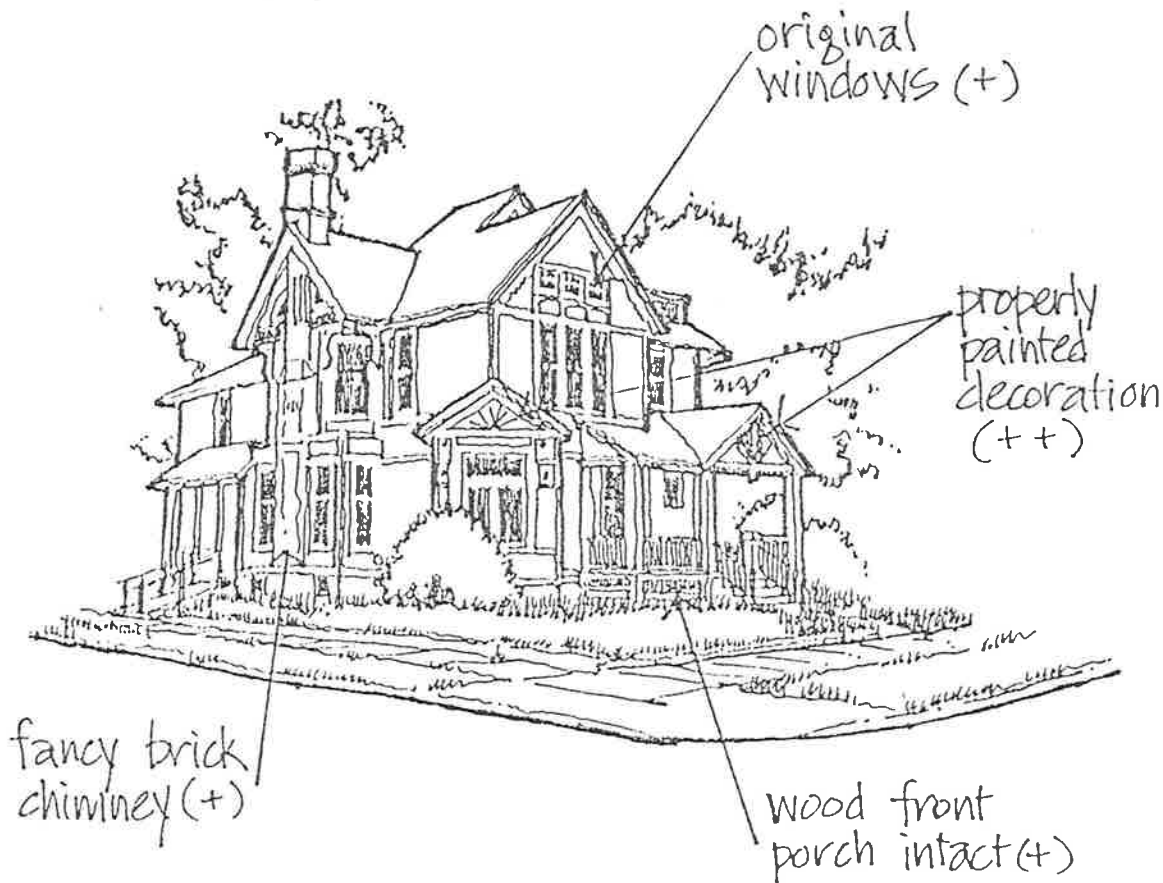 original
windows (+)
properly
painted
decoration
(++)
fancy brick
chimney (+)
wood front
porch intact (+)